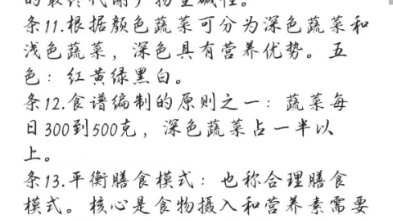 的最终代谢产物呈碱性。
条11.根据颜色蔬菜可分为深色蔬菜和
浅色蔬菜，深色具有营养优势。五
色：红黄绿黑白。
条12.食谱编制的原则之一：蔬菜每
日300到500克，深色蔬菜占一半以
上。
条13.平衡膳食模式：也称合理膳食
模式。核心是食物摄入和营养素需要